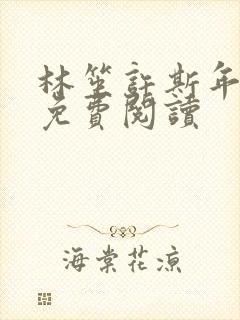 林笙許斯年
免費閱讀
海棠花凉